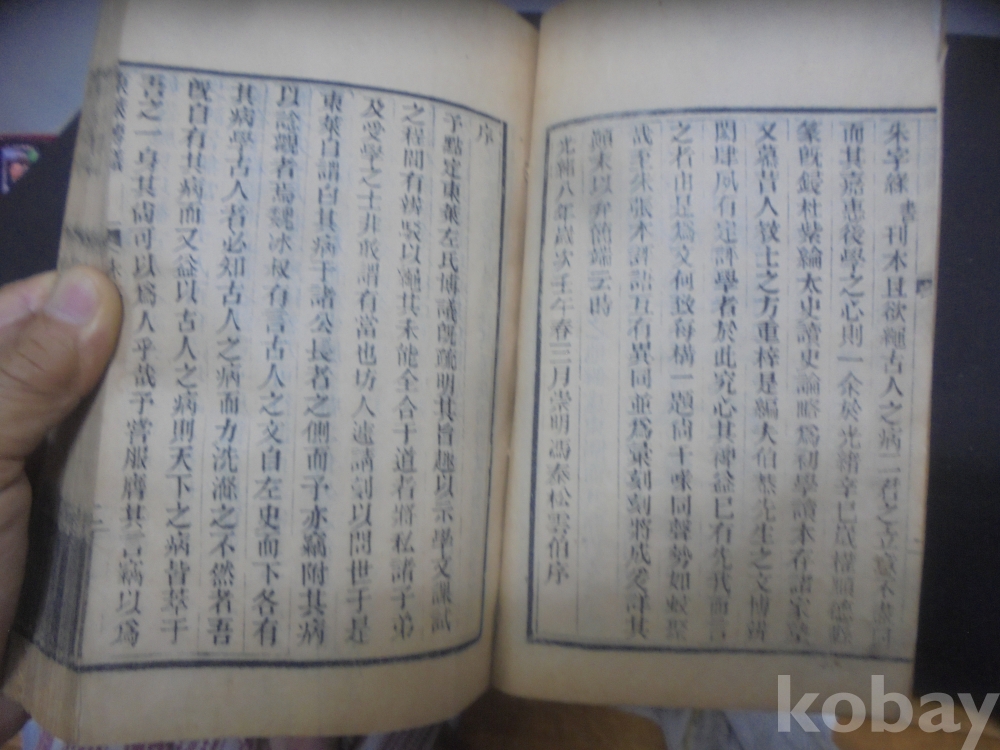 朱字綠書刊本且欲繩古人之病二君之立意不
而其嘉惠後學之心則一余於光緒辛巳
篆既鋟杜紫綸太史讀史論略爲初學讀本在諸家
又慕昔人敎士之方重梓是編夫伯恭先生之文博
閎肆夙有定評學者於此究心其裨益已有先我而言
之者由是爲文何致每構一題尙十咪同聲勢如蚊聚
哉至朱張本評語互有異同並爲彙刻刻將成爰詳其
顚末以弁簡端云時
光緒八年歲次壬午春三月崇明馮泰松雲伯序
序
予點定東萊左氏博議旣疏明其旨趣以示學文課試
之程間有辨駁以繩其未能全合于道者將私諸子弟
及受學之士非敢謂有當也坊人遽請刻以問世于是
東萊自謂曰其病于諸公長者之側而予亦竊附其病
以諗觀者焉魏冰叔有言古人之文自左史而下各有
其病學古人者必知古人之病而力洗滌之不然者吾
旣自有其病而又益以古人之病則天下之病皆萃于
吾之一身其尙可以爲人乎哉予嘗服膺其言竊以爲
東萊博議